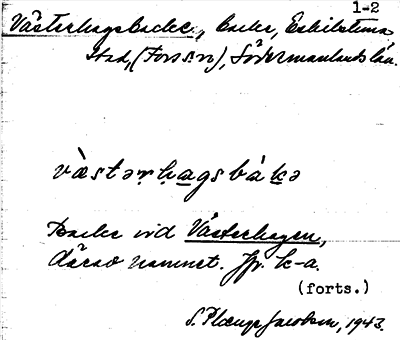 1-2
Västerhagsbacke, backe, Eskilstuna
stad, (Fors sn), Södermanlands län.
vàstərhagsbákə
Backe vid Västerhagen,
därav namnet. Jfr. k-a.
(forts.)
S. Plænge Jacobson, 1943.